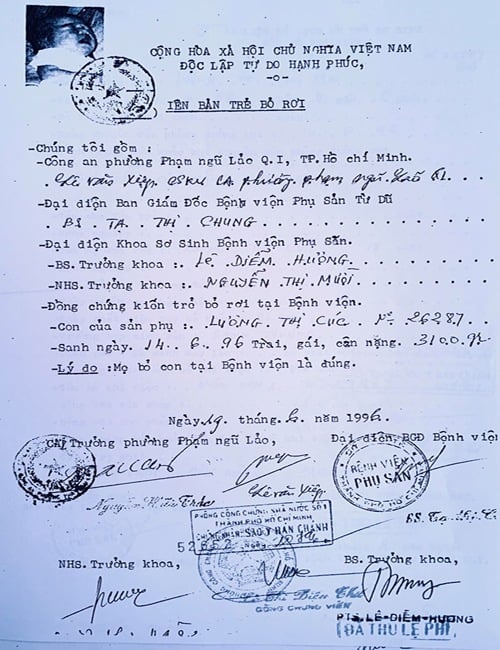 CỘNG HÒA XÃ HỘI CHỦ NGHĨA VIỆT NAM
ĐỘC LẬP TỰ DO HẠNH PHÚC,
-o-
IÊN BẢN TRẺ BỎ RƠI
-Chúng tôi gồm :
-Công an phường Phạm ngũ Lảo Q.I, TP.Hồ chí Minh.
Lê văn Xiệp. CSKV CA. phường phạm ngũ Lão Q1.
-Đại diện Ban Giám Đốc Bệnh viện Phụ Sản Từ Dũ
BS. TẠ. THỊ. CHUNG
-Đại diện Khoa Sơ Sinh Bệnh viện Phụ Sản.
-BS.Trưởng khoa :. Lê. DIỄM. HƯƠNG
-NHS.Trưởng khoa :. NGUYỄN THỊ MƯỜI
-Đồng chứng kiến trẻ bỏ rơi tại Bệnh viện.
-Con của sản phụ :. LƯƠNG. THỊ CÚC. Nº 26287
-Sanh ngày. 14. 6. 96 Trai, gái, cân nặng. 3100. gr
-Lý do :Mẹ bỏ con tại Bệnh viện là đúng.
Ngày 19. tháng. 6. năm 1996.
CA Trưởng phường Phạm ngũ Lảo, Đại diện BGĐ Bệnh viện
BỆNH VIỆN
PHỤ SẢN
Lê văn Xiệp
PHÒNG CÔNG CHỨNG NHÀ NƯỚC SỐ 1
THÀNH PHỐ HỒ CHÍ MINH
CHỨNG NHẬN: SAO Y BẢN CHÁNH
NHS.Trưởng khoa, BS.Trưởng khoa,
CÔNG CHỨNG VIÊN
PTS. LÊ-DIỄM-HƯƠNG
ĐÃ THU LỆ PHÍ